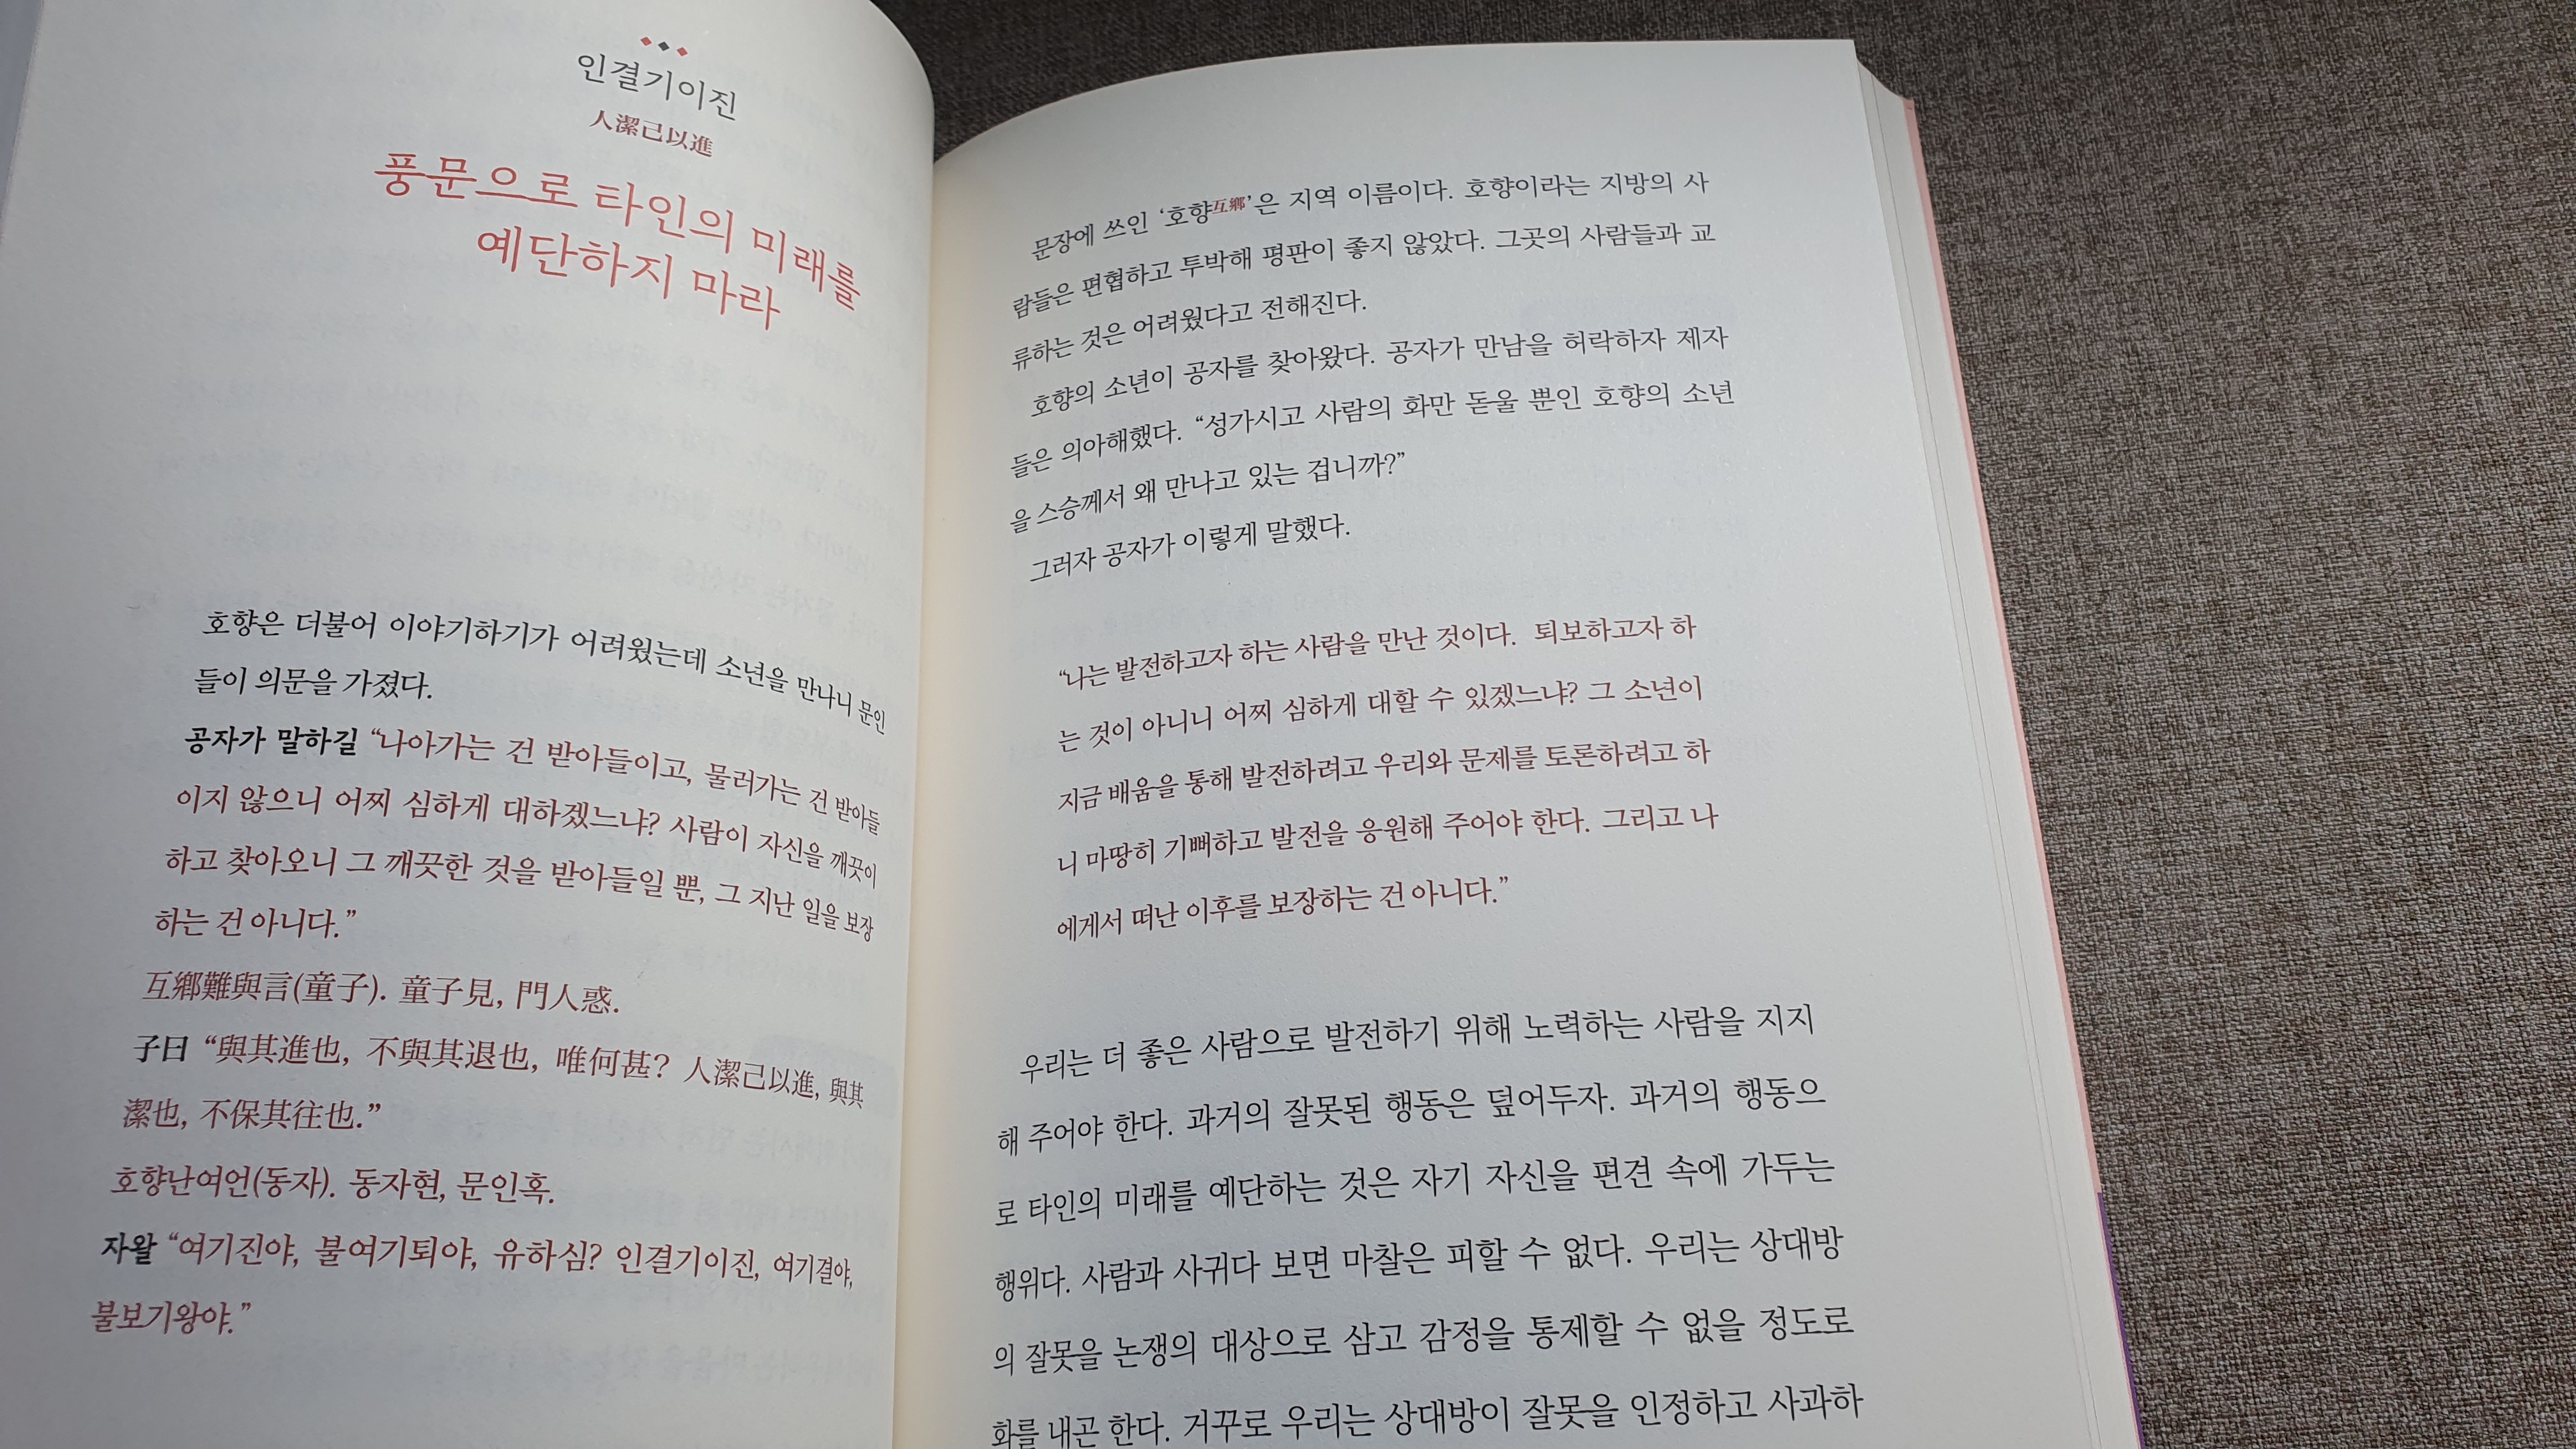 인결기이진
人潔己以進
풍문으로 타인의 미래를
예단하지 마라
호향은 더불어 이야기하기가 어려웠는데 소년을 만나니 문인
들이 의문을 가졌다.
공자가 말하길 “나아가는 건 받아들이고, 물러가는 건 받아들
이지 않으니 어찌 심하게 대하겠느냐? 사람이 자신을 깨끗이
하고 찾아오니 그 깨끗한 것을 받아들일 뿐, 그 지난 일을 보장
하는 건 아니다.”
互鄕難與言(童子). 童子見, 門人惑.
子曰 “與其進也, 不與其退也, 唯何甚? 人潔己以進, 與其
潔也, 不保其往也.”
호향난여언(동자). 동자현, 문인혹.
자왈 “여기진야, 불여기퇴야, 유하심? 인결기이진, 여기결야,
불보기왕야.”
문장에 쓰인 ‘호향互鄕’은 지역 이름이다. 호향이라는 지방의 사
람들은 편협하고 투박해 평판이 좋지 않았다. 그곳의 사람들과 교
류하는 것은 어려웠다고 전해진다.
호향의 소년이 공자를 찾아왔다. 공자가 만남을 허락하자 제자
들은 의아해했다. “성가시고 사람의 화만 돋울 뿐인 호향의 소년
을 스승께서 왜 만나고 있는 겁니까?”
그러자 공자가 이렇게 말했다.
“나는 발전하고자 하는 사람을 만난 것이다. 퇴보하고자 하
는 것이 아니니 어찌 심하게 대할 수 있겠느냐? 그 소년이
지금 배움을 통해 발전하려고 우리와 문제를 토론하려고 하
니 마땅히 기뻐하고 발전을 응원해 주어야 한다. 그리고 나
에게서 떠난 이후를 보장하는 건 아니다.”
우리는 더 좋은 사람으로 발전하기 위해 노력하는 사람을 지지
해 주어야 한다. 과거의 잘못된 행동은 덮어두자. 과거의 행동으
로 타인의 미래를 예단하는 것은 자기 자신을 편견 속에 가두는
행위다. 사람과 사귀다 보면 마찰은 피할 수 없다. 우리는 상대방
의 잘못을 논쟁의 대상으로 삼고 감정을 통제할 수 없을 정도로
화를 내곤 한다. 거꾸로 우리는 상대방이 잘못을 인정하고 사과하